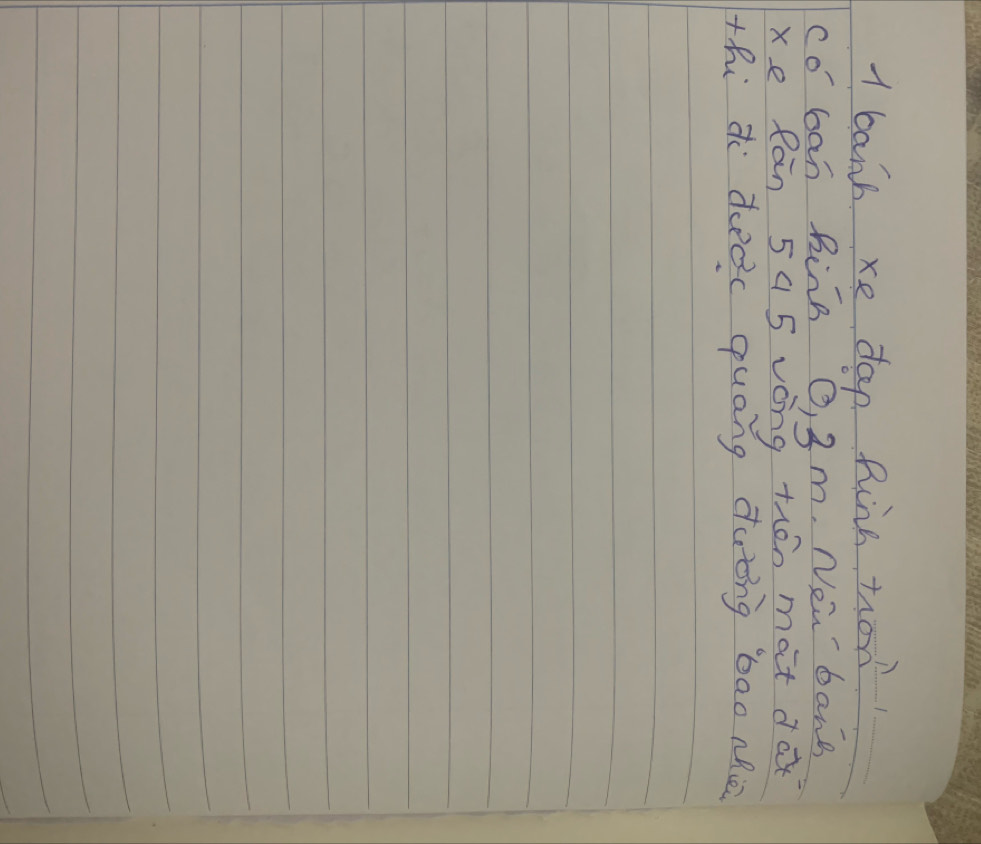 1 bánh xe đạp hình tròn
có bán kính 0,3 m. Nếu bánh
xe lăn 545 vòng trên mặt đất
thì đi được quãng đường bao nhiêu